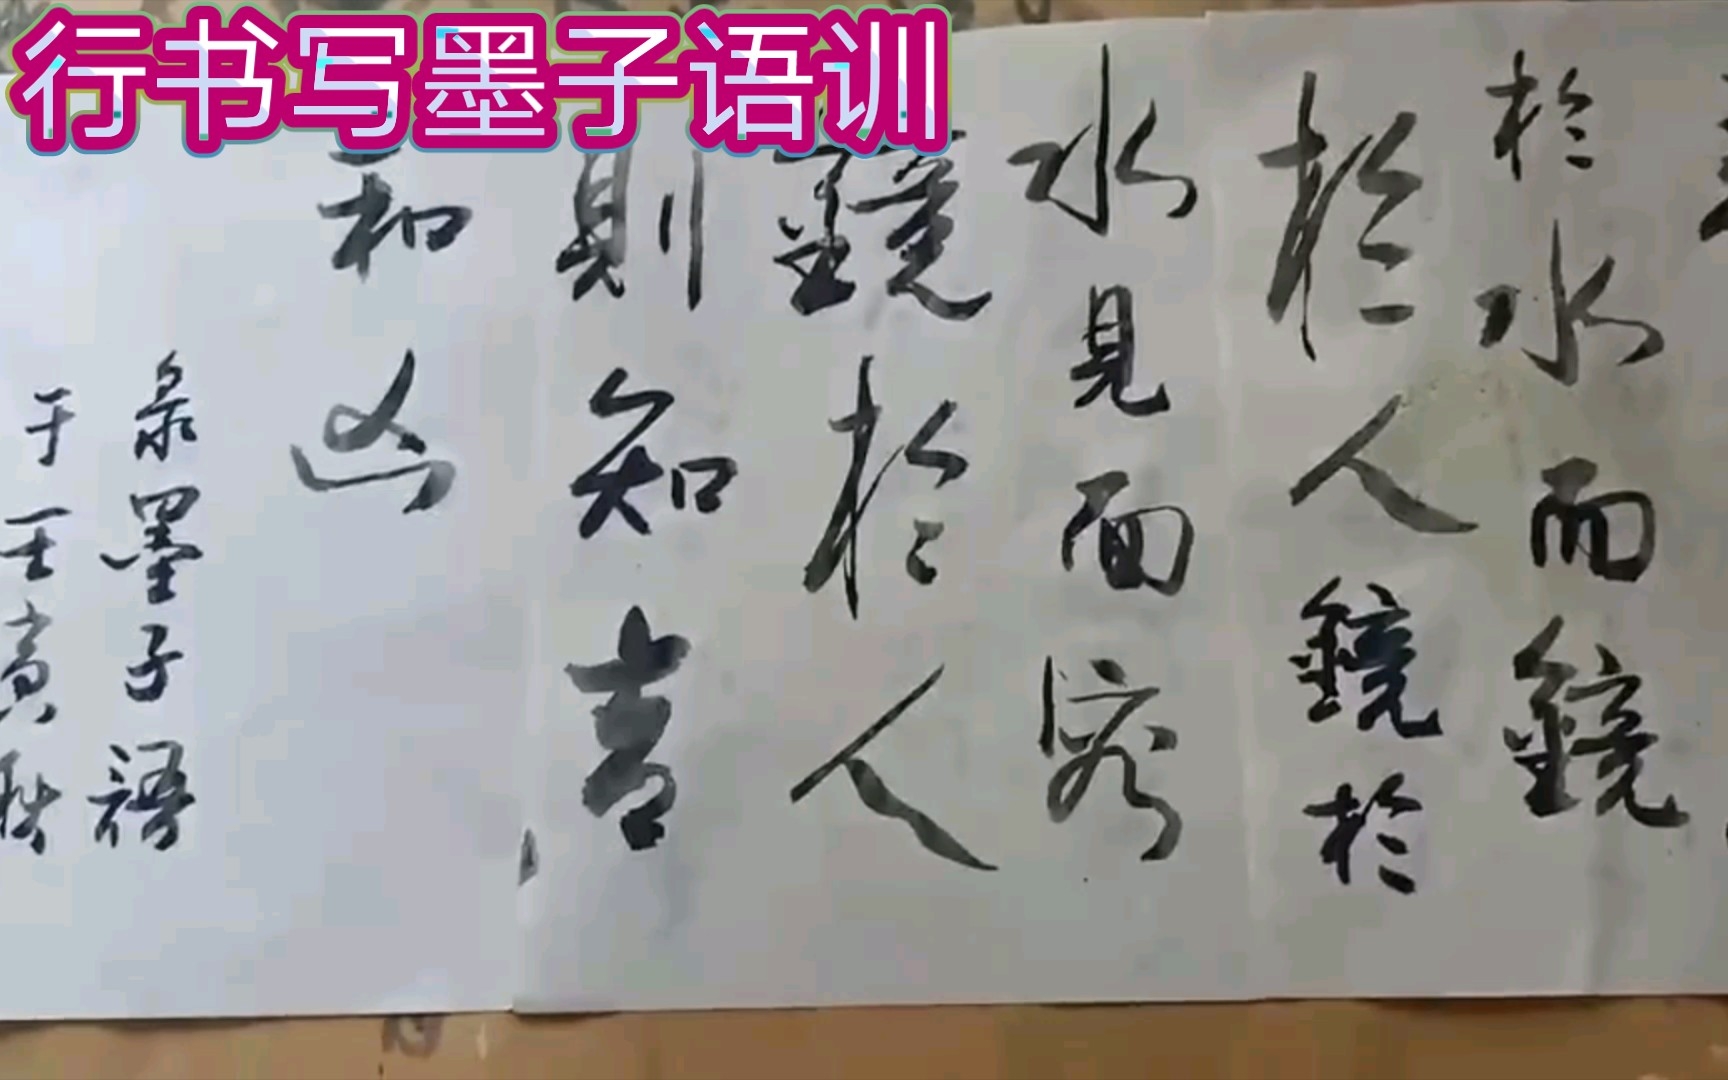 行书写墨子语训
於水而鏡
於人鏡於
水見面容
鏡於人
則知吉
和凶
录墨子語
于壬寅秋